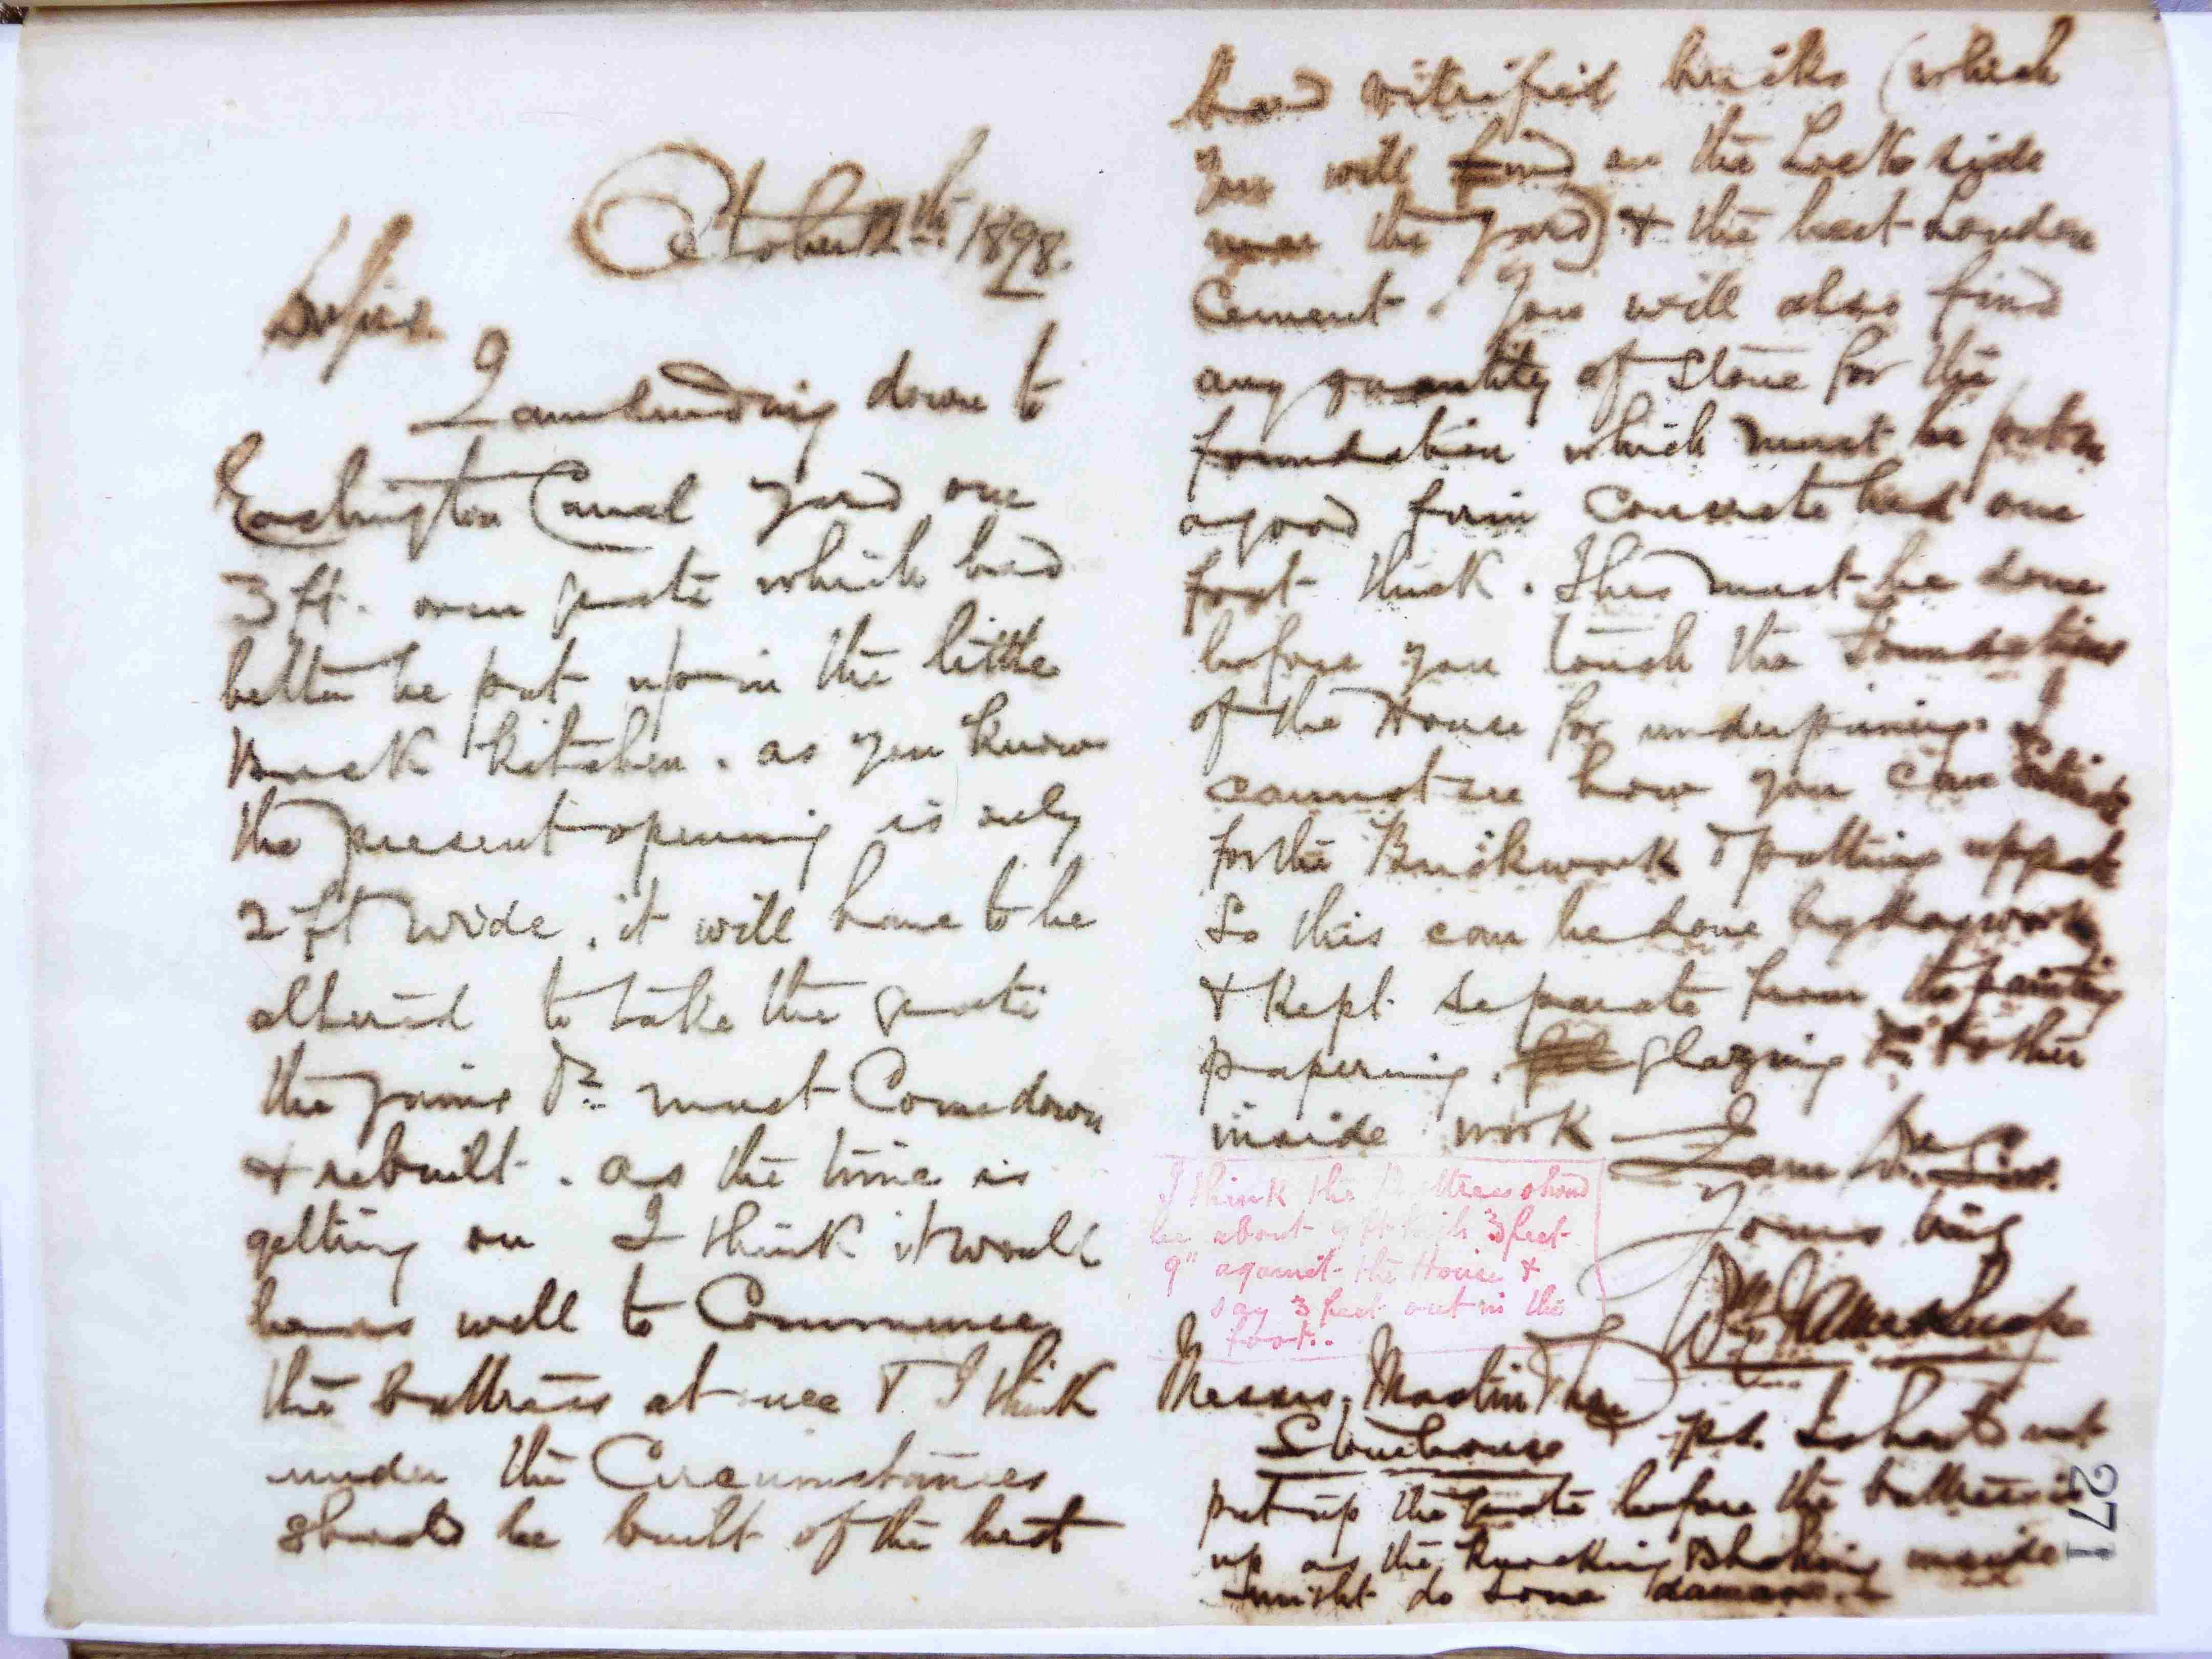 October 12th 1898.
Dr Sir
I am sending down to
Eashington Canal yard one
3 ft. oven grate which had
better be put up in the little
Back kitchen. as you know
the present opening is only
2 ft wide. it will have to be
altered to take the grate
the jams &c must Come down
& rebuilt. as the time is
getting on I think it would
be as well to Commence
the buttress at once & I think
under the Circumstances
should be built of the best
hard vitrified bricks (which
you will find on the Lock side
near the yard) & the best London
Cement. You will also find
any quantity of Stone for the
foundation which must be put on
a good firm concrete bed one
foot thick. This must be done
before you touch the Foundations
of the House for underpining. I
cannot see how you can
for the Brickwork & putting up grate
So this can be done by daywork
& kept separate from the painting
papering. glazing &c & other
inside work I am Dr Sirs.
Yours truly
I think the Buttress should
be about 4 ft high 3 feet
9" against the House &
say 3 feet out in the
foot..
Messrs. Martin & 
Stonehouse
ps. I should not
put up the grate before the buttress is
up as the knocking & shaking inside
might do some damage.
271